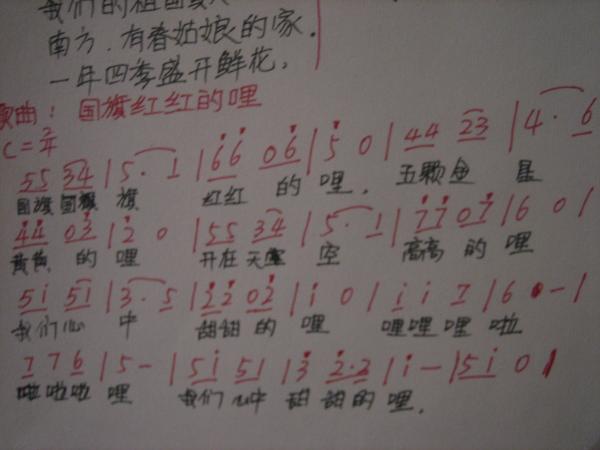 我们的祖国真大
南方，有春姑娘的家。
一年四季盛开鲜花。
歌曲：国旗红红的哩
C=2/4
55 34 | 5· 1 | 66 06 | 5 0 | 44 23 | 4· 6
国旗国旗 旗 红红 的 哩， 五颗金 星
44 03 | 2 0 | 55 34 | 5· 1 | 77 07 | 6 0 |
黄黄 的 哩 升在天空 空 高高 的 哩
5i 51 | 3· 5 | 22 02 | i 0 | i i 7 | 6 - |
我们心 中 甜甜 的 哩 哩哩哩 啦
7 7 6 | 5 - | 5i 51 | 3 2·2 | i - | 5i 0 |
啦啦啦 哩 我们心中 甜 甜的 哩。